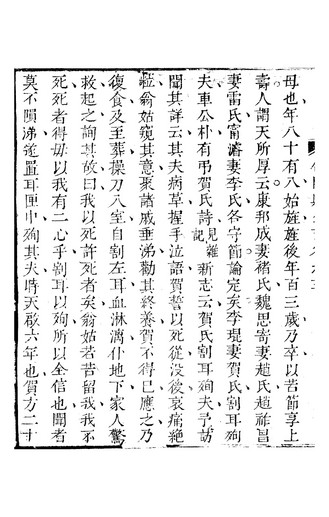 母也年八十有八始旌旌後年百三歲乃卒以苦節享上
壽人謂天所厚云康邦成妻褚氏魏思寄妻趙氏趙祚昌
妻雷氏甯濳妻李氏各守節論定矣李琨妻賀氏割耳殉
夫車公朴有弔賀氏詩見雜記新志云賀氏割耳殉夫予訪
聞其詳云其夫病草握手泣語賀誓以死從没後哀痛絶
粒翁姑窺其意聚諸戚垂涕勸其終養賀不得已應之乃
復食及至葬操刀入室自割左耳血淋漓仆地下家人驚
救起之詢其故曰我以死許死者矣翁姑苦苦留我我不
死死者得毋以我有二心乎割耳以殉所以全信也聞者
莫不隕涕遂置耳匣中殉其夫時天啟六年也賀方二十